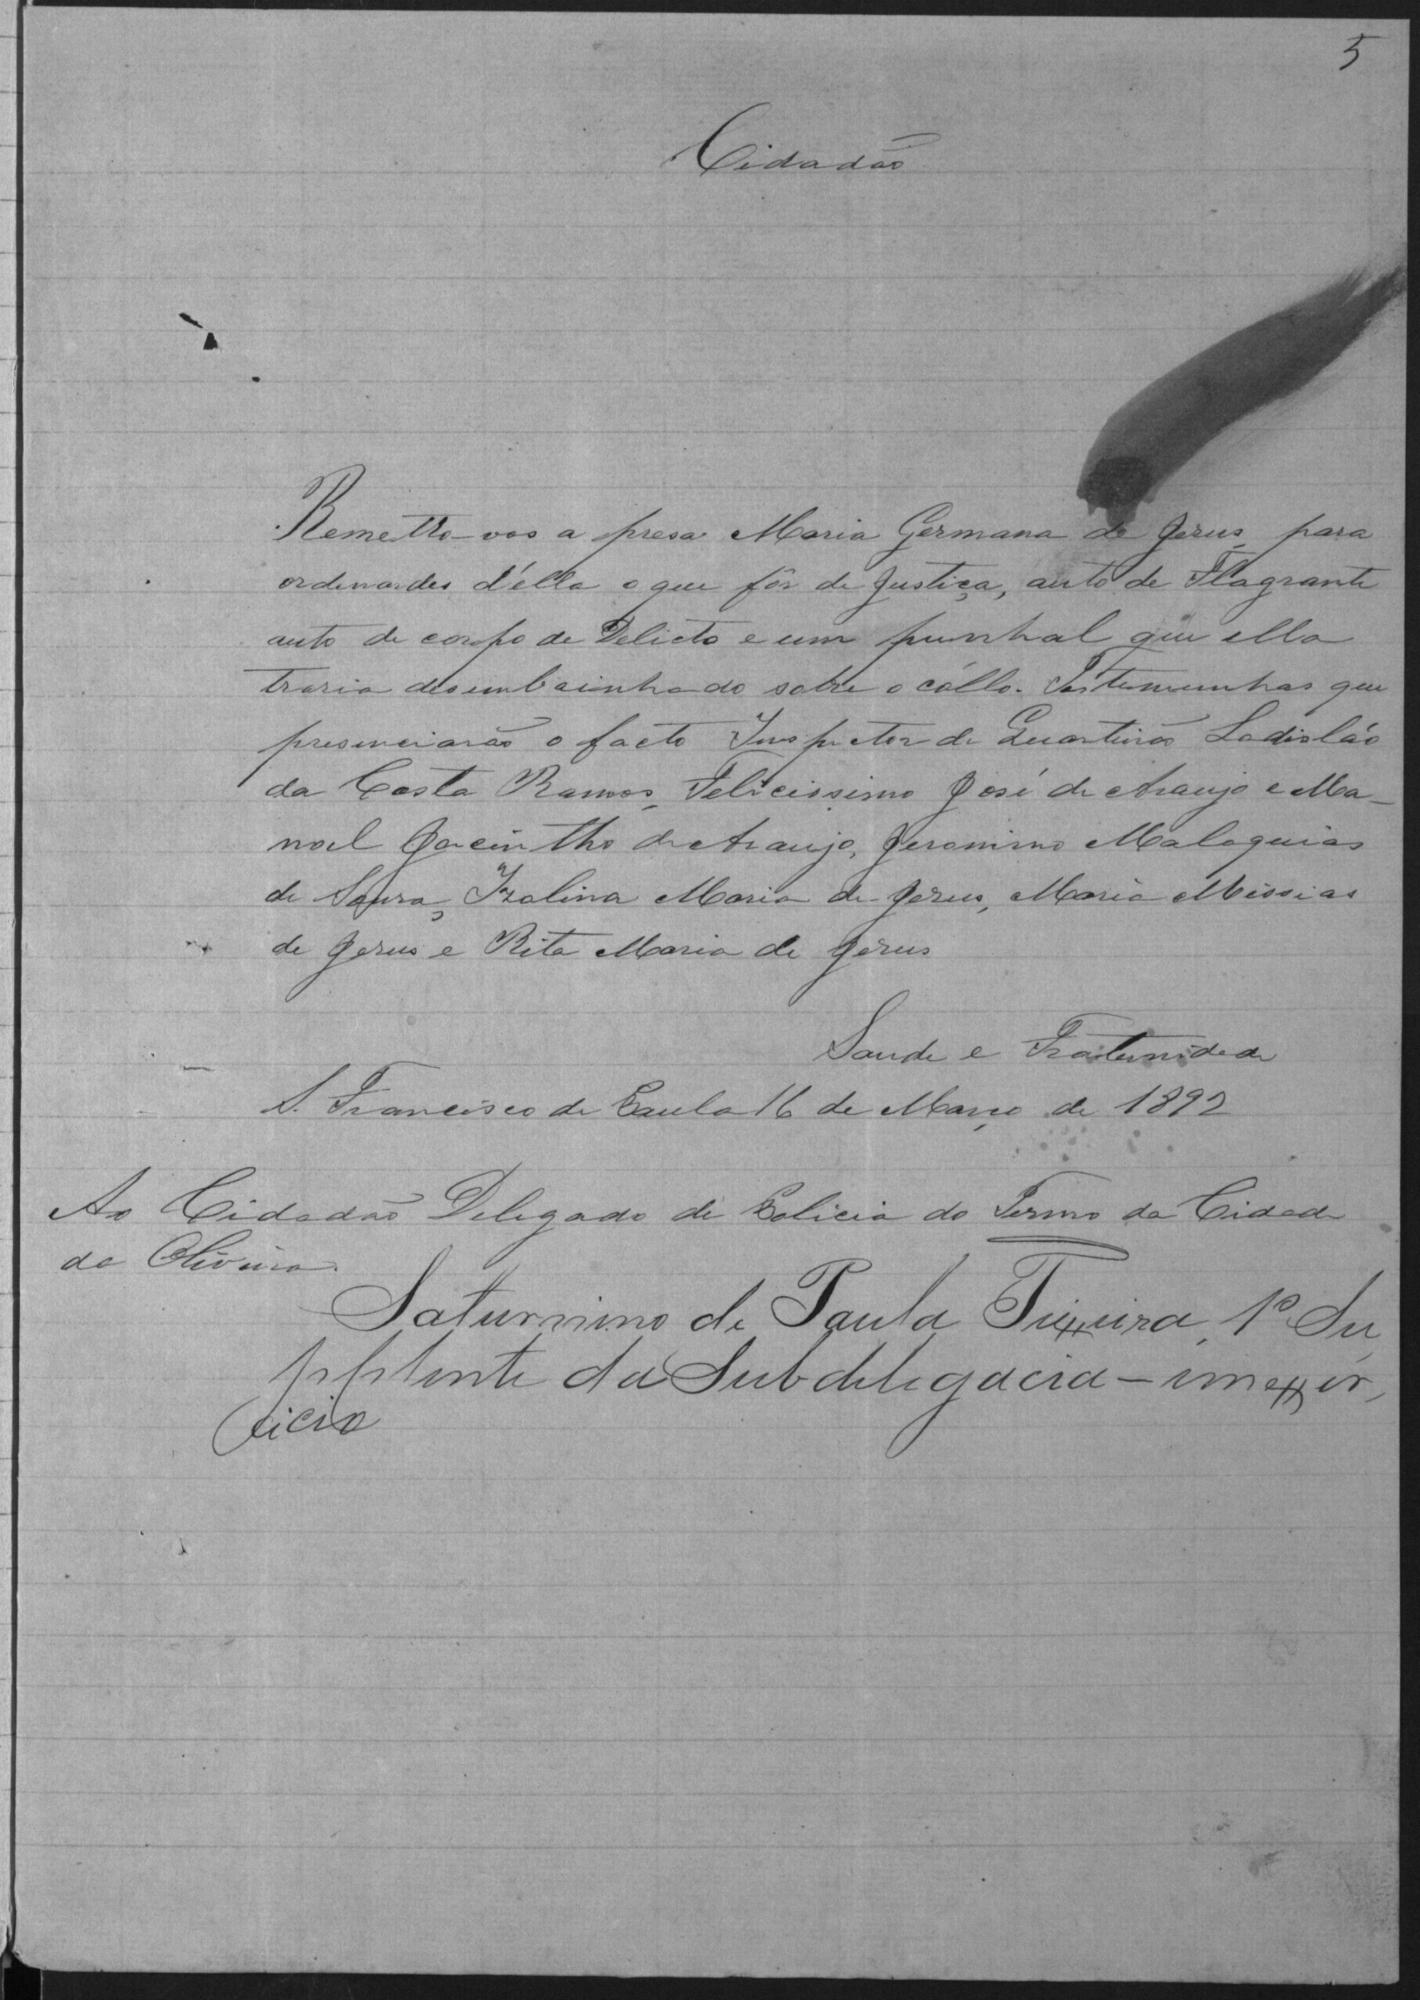 5
Cidadão
Remetto-vos a presa Maria Germana de Jesus, para
ordenardes d'élla o que fôr de Justiça, auto de Flagrante
auto de corpo de Delicto e um punhal que ella
trasia desembainhado sobre o cóllo. Testemunhas que
presenciarão o facto Inspector de Quarteirão Ladisláo
da Costa Ramos, Felicissimo José de Araujo e Ma-
noel Jacintho de Araujo, Jeronimo Malaquias
de Soura, Izolina Maria de Jesus, Maria Messias
de Jesus e Rita Maria de Jesus
Saude e Fraternidade
S. Francisco de Paula 16 de Março de 1892
Ao Cidadão Delegado de Policia do Termo da Cidade
da Oliveira.
Saturnino de Paula Teixeira, 1º Su
pplente da Subdelegacia - em exer,
cicio